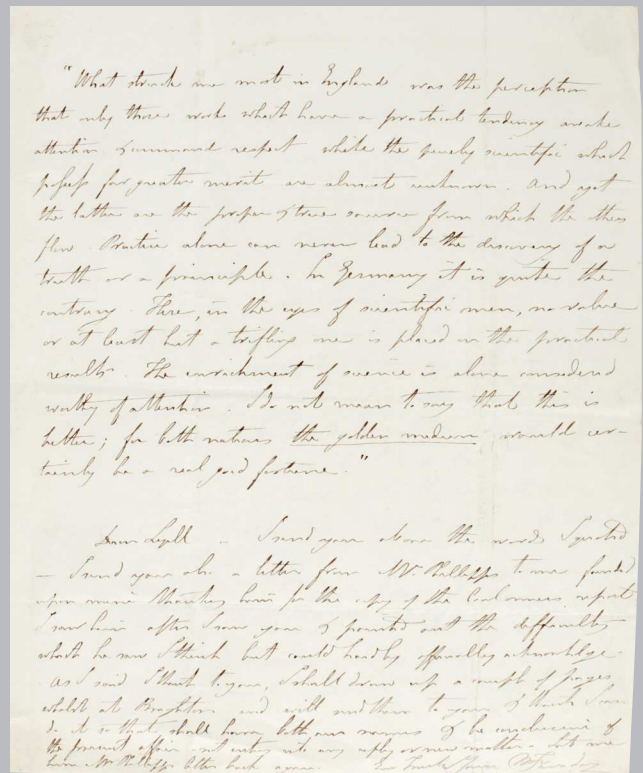 "What struck me most in England was the perception
that only those works which have a practical tendency awake
attention & command respect while the purely scientific which
possess far greater merit are almost unknown. And yet
the latter are the proper & true source from which the others
flow. Practice alone can never lead to the discovery of a
truth or a principle. In Germany it is quite the
contrary. Here, in the eyes of scientific men, no value
or at least but a trifling one is placed on the practical
results. The enrichment of science is alone considered
worthy of attention. I do not mean to say that this is
better; for both nations the golden medium would cer-
tainly be a real good fortune."
Dear Lyell - I send you above the words I quoted
- I send you also a letter from Mr. Phillipps to me founded
upon mine thanking him for the copy of the Coal owners report
I saw him after I saw you & pointed out the difficulty
which he saw I think but could hardly officially acknowledge.
As I said I think to you, I shall draw up a couple of pages
whilst at Brighton and will send them to you & think I can
do it so that shall have both our names & be conclusive of
the present affair - not entering into any reply or new matter. Let me
have Mr Phillipps letter back again. Ever Truly Yours M Faraday